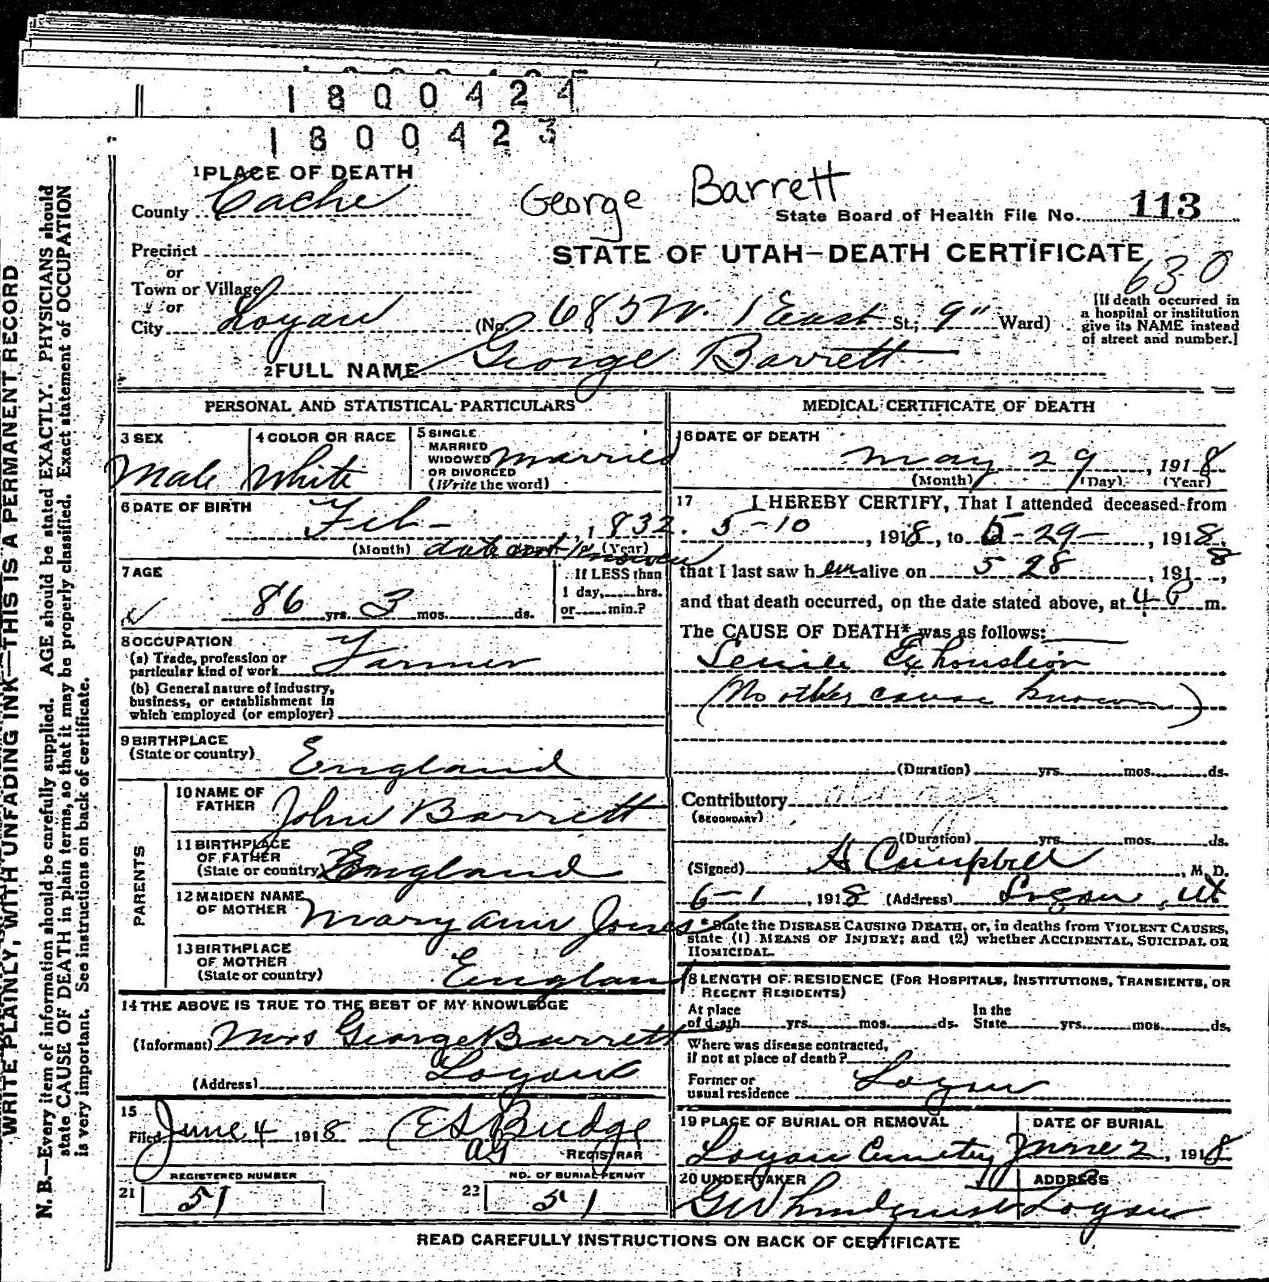 1800424
1800423
1 PLACE OF DEATH
County Cache
George Barrett
State Board of Health File No. 113
Precinct
STATE OF UTAH—DEATH CERTIFICATE
or
Town or Village
630
or
City Logan (No. 685 W. 1 East St.; 9" Ward)
[If death occurred in
a hospital or institution
give its NAME instead
of street and number.]
2 FULL NAME George Barrett
PERSONAL AND STATISTICAL PARTICULARS
3 SEX
Male
4 COLOR OR RACE
White
5 SINGLE
MARRIED
WIDOWED
OR DIVORCED
(Write the word)
Married
6 DATE OF BIRTH
Feb – , 1832.
(Month) (Year)
date not known
7 AGE
86 yrs. 3 mos. ds.
If LESS than
1 day, hrs.
or min.?
8 OCCUPATION
(a) Trade, profession or
particular kind of work Farmer
(b) General nature of Industry,
business, or establishment in
which employed (or employer)
9 BIRTHPLACE
(State or country) England
PARENTS
10 NAME OF
FATHER John Barrett
11 BIRTHPLACE
OF FATHER
(State or country) England
12 MAIDEN NAME
OF MOTHER Mary Ann Jones
13 BIRTHPLACE
OF MOTHER
(State or country) England
14 THE ABOVE IS TRUE TO THE BEST OF MY KNOWLEDGE
(Informant) Mrs George Barrett
(Address) Logan
15
Filed June 4 1918 E S Budge
REGISTRAR
REGISTERED NUMBER
21 51
NO. OF BURIAL PERMIT
22 51
MEDICAL CERTIFICATE OF DEATH
16 DATE OF DEATH
May 29, 1918
(Month) (Day) (Year)
17 I HEREBY CERTIFY, That I attended deceased from
5-10, 1918, to 5-29-, 1918,
that I last saw h im alive on 5 28, 1918,
and that death occurred, on the date stated above, at 4 P m.
The CAUSE OF DEATH* was as follows:
Senile Exhaustion
(No other cause known)
(Duration) yrs. mos. ds.
Contributory old age
(SECONDARY)
(Duration) yrs. mos. ds.
(Signed) H Campbell, M. D.
6-1, 1918 (Address) Logan, Ut
*State the DISEASE CAUSING DEATH, or, in deaths from VIOLENT CAUSES,
state (1) MEANS OF INJURY; and (2) whether ACCIDENTAL, SUICIDAL OR
HOMICIDAL.
18 LENGTH OF RESIDENCE (FOR HOSPITALS, INSTITUTIONS, TRANSIENTS, OR
RECENT RESIDENTS)
At place
of death yrs. mos. ds.
In the
State yrs. mos. ds.
Where was disease contracted,
if not at place of death?
Former or
usual residence Logan
19 PLACE OF BURIAL OR REMOVAL
Logan Cemetry
DATE OF BURIAL
June 2, 1918
20 UNDERTAKER
G W Lindquist
ADDRESS
Logan
READ CAREFULLY INSTRUCTIONS ON BACK OF CERTIFICATE
WRITE PLAINLY, WITH UNFADING INK—THIS IS A PERMANENT RECORD
N. B.—Every item of information should be carefully supplied. AGE should be stated EXACTLY. PHYSICIANS should
state CAUSE OF DEATH in plain terms, so that it may be properly classified. Exact statement of OCCUPATION
is very important. See instructions on back of certificate.